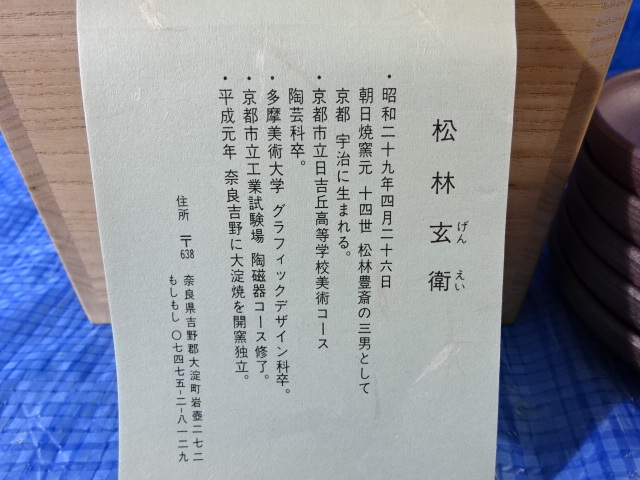 松林玄衛
げん えい
・昭和二十九年四月二十六日
朝日焼窯元 十四世 松林豊斎の三男として
京都 宇治に生まれる。
・京都市立日吉丘高等学校美術コース
陶芸科卒。
・多摩美術大学 グラフィックデザイン科卒。
・京都市立工業試験場 陶磁器コース修了。
・平成元年 奈良吉野に大淀焼を開窯独立。
住所 〒638 奈良県吉野郡大淀町岩壺二七二
もしもし 〇七四七五-二-八一二九